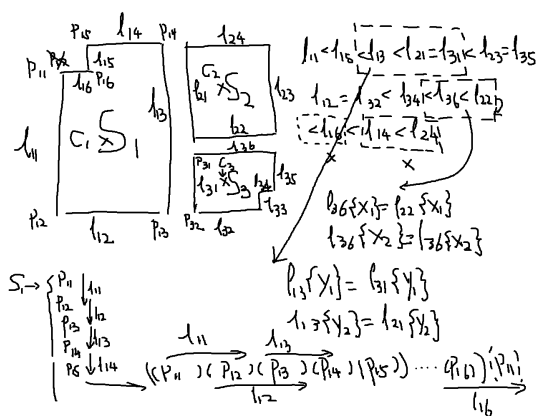 P₁₅ l₁₄ P₁₄
P₁₁ l₁₅
l₁₆ P₁₆
l₁₁ C₁ × S₁ l₁₃
P₁₂ l₁₂ P₁₃
l₂₄
l₂₁ C₂ × S₂ l₂₃
l₂₂
l₃₆
P₃₁ C₃
l₃₁ × S₃ l₃₄ l₃₅
l₃₃
P₃₂ l₃₂
l₁₁<l₁₅<l₁₃<l₂₁=l₃₁<l₂₃=l₃₅
l₁₂=l₃₂<l₃₄<l₃₆<l₂₂
<l₁₆<l₁₄<l₂₄
× ×
l₃₆{X₁}=l₂₂{X₁}
l₃₆{X₂}=l₃₆{X₂}
l₁₃{Y₁}=l₃₁{Y₁}
l₁₃{Y₂}=l₂₁{Y₂}
S₁→{P₁₁ l₁₁
P₁₂ l₁₂
P₁₃ l₁₃
P₁₄ l₁₄
P₁₅
l₁₁ l₁₃
((P₁₁)(P₁₂)(P₁₃)(P₁₄)(P₁₅))⋯(P₁₆)¦P₁₁¦
l₁₂ l₁₆